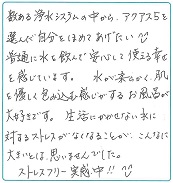 数ある浄水システムの中から、アクアス5を
選んだ自分をほめてあげたい
普通に水を飲んで安心して使える幸せ
を感じています。 水が柔らかく、肌
を優しく包み込む感じがするお風呂が
大好きです。 生活に欠かせない水に
対するストレスがなくなることが、こんなに
大きいとは思いませんでした。
ストレスフリー 実感中!!